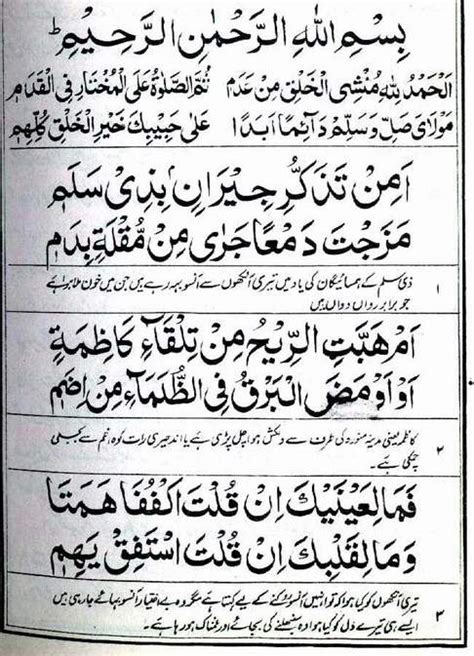 بِسْمِ اللهِ الرَّحْمٰنِ الرَّحِيْمِ ط
اَلْحَمْدُ لِلّٰهِ مُنْشِی الْخَلْقِ مِنْ عَدَمٍ ثُمَّ الصَّلٰوةُ عَلَی الْمُخْتَارِ فِی الْقَدَمِ
مَوْلَایَ صَلِّ وَسَلِّمْ دَآئِمًا اَبَدًا عَلٰی حَبِيْبِكَ خَيْرِ الْخَلْقِ كُلِّهِمِ
اَمِنْ تَذَكُّرِ جِيْرَانٍ بِذِیْ سَلَمٍ
مَزَجْتَ دَمْعًا جَرٰی مِنْ مُّقْلَةٍ بِدَمٍ
۱ ذی سلم کے ہمسائیگان کی یاد میں تیری آنکھوں سے آنسو بہہ رہے ہیں جن میں خون ملا ہوا ہے
جو برابر رواں دواں ہیں
اَمْ هَبَّتِ الرِّيْحُ مِنْ تِلْقَآءِ كَاظِمَةٍ
اَوْ اَوْمَضَ الْبَرْقُ فِی الظَّلْمَآءِ مِنْ اِضَمٍ
۲ کاظمہ یعنی مدینہ منورہ کی طرف سے دلکش ہوا چل پڑی ہے یا اندھیری رات کوہ اضم سے بجلی
چمکی ہے۔
فَمَا لِعَيْنَيْكَ اِنْ قُلْتَ اكْفُفَا هَمَتَا
وَمَا لِقَلْبِكَ اِنْ قُلْتَ اسْتَفِقْ يَهِمٖ
۳ تیری آنکھوں کو کیا ہوا کہ تو انہیں آنسو رکنے کے لیے کہتا ہے مگر وہ بے اختیار آنسو بہائے جا رہی ہیں
ایسے ہی تیرے دل کو کیا ہوا وہ سنبھلنے کی بجائے اور غمناک ہو رہا ہے۔